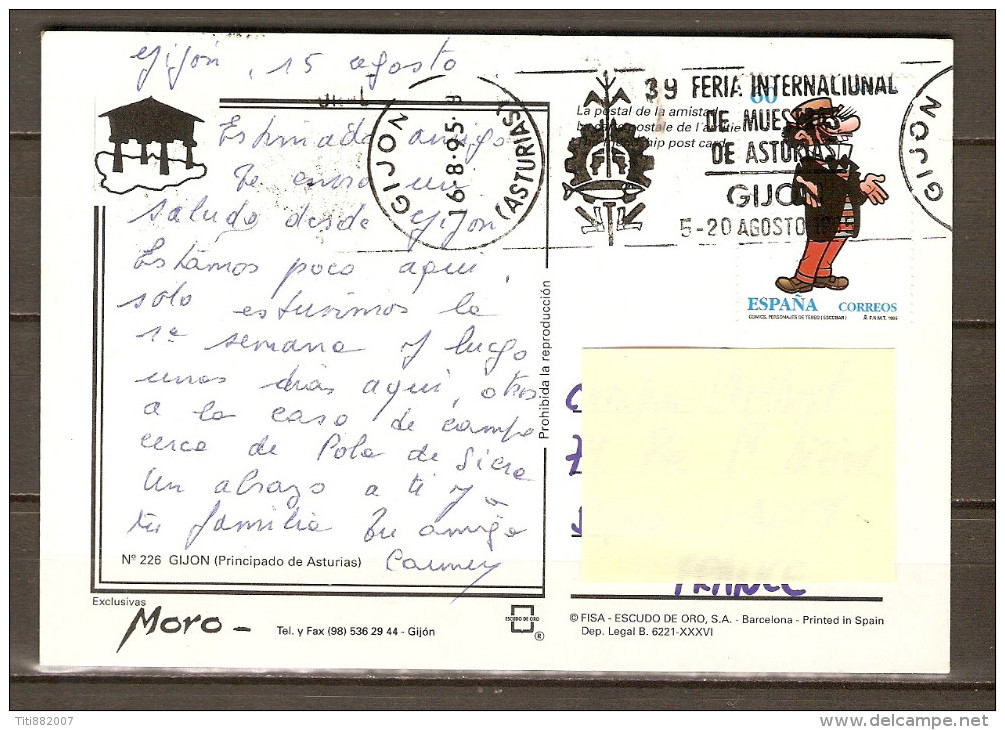 Gijón, 15 agosto
Estimado amigo
Te envio un
saludo desde Gijón
Estamos poco aqui,
solo estuvimos la
1ª semana y luego
unos dias aqui, otros
a la casa de campo
cerca de Pola de Siero
Un abrazo a ti y a
tu familia Tu amigo
Carmen
Nº 226 GIJON (Principado de Asturias)
Exclusivas
Moro
Tel. y Fax (98) 536 29 44 - Gijón
ESCUDO DE ORO
®
Prohibida la reproducción
GIJON
16-8-95-
(ASTURIAS)
La postal de la amistad
postale de l'amitie
ship post card
39 FERIA INTERNACIONAL
DE MUESTRAS
DE ASTURIAS
GIJON
5-20 AGOSTO
GIJON
60
ESPAÑA CORREOS
COMICS. PERSONAJES DE TEBEO (ESCOBAR) R.F.N.M.T. 1995
FRANCE
© FISA - ESCUDO DE ORO, S.A. - Barcelona - Printed in Spain
Dep. Legal B. 6221-XXXVI
Titi882007
www.delcampe.net